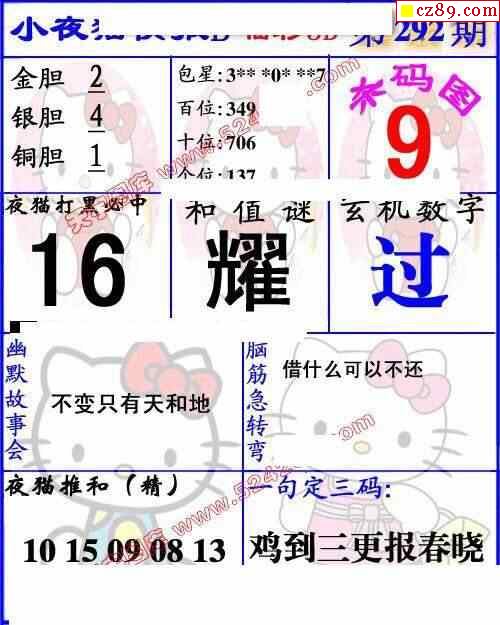 cz89.com
小夜猫 B 3D 第292期
金胆 2
银胆 4
铜胆 1
包星: 3** *0* **7
百位: 349
十位: 706
个位: 137
本码图
9
夜猫打黑必中
16
和值谜
耀
玄机数字
过
幽默故事会
不变只有天和地
脑筋急转弯
借什么可以不还
夜猫推和（精）
10 15 09 08 13
一句定三码:
鸡到三更报春晓